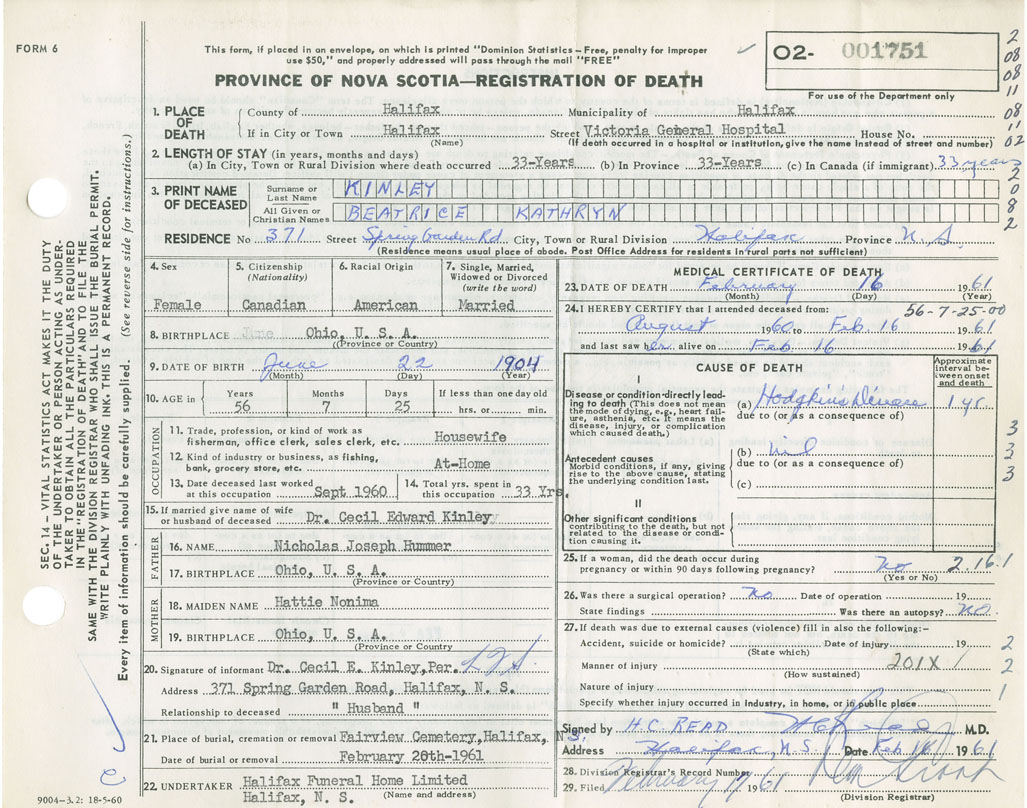 FORM 6
This form, if placed in an envelope, on which is printed "Dominion Statistics – Free, penalty for improper
use $50," and properly addressed will pass through the mail "FREE"
PROVINCE OF NOVA SCOTIA—REGISTRATION OF DEATH
02- 001751
For use of the Department only
2
08
08
11
08
11
02
2
0
8
2
1. PLACE OF DEATH
County of Halifax Municipality of Halifax
If in City or Town Halifax Street Victoria General Hospital House No.
(Name) (If death occurred in a hospital or institution, give the name instead of street and number)
2. LENGTH OF STAY (in years, months and days)
(a) In City, Town or Rural Division where death occurred 33-Years (b) In Province 33-Years (c) In Canada (if immigrant) 33 years
3. PRINT NAME OF DECEASED
Surname or Last Name KINLEY
All Given or Christian Names BEATRICE KATHRYN
RESIDENCE No 371 Street Spring Garden Rd City, Town or Rural Division Halifax Province N.S.
(Residence means usual place of abode. Post Office Address for residents in rural parts not sufficient)
4. Sex
Female
5. Citizenship
(Nationality)
Canadian
6. Racial Origin
American
7. Single, Married,
Widowed or Divorced
(write the word)
Married
8. BIRTHPLACE June Ohio, U. S. A.
(Province or Country)
9. DATE OF BIRTH June 22 1904
(Month) (Day) (Year)
10. AGE in
Years Months Days If less than one day old
56 7 25 hrs. or min.
OCCUPATION
11. Trade, profession, or kind of work as
fisherman, office clerk, sales clerk, etc. Housewife
12. Kind of industry or business, as fishing,
bank, grocery store, etc. At-Home
13. Date deceased last worked
at this occupation Sept 1960
14. Total yrs. spent in
this occupation 33 Yrs.
15. If married give name of wife
or husband of deceased Dr. Cecil Edward Kinley
FATHER
16. NAME Nicholas Joseph Hummer
17. BIRTHPLACE Ohio, U. S. A.
(Province or Country)
MOTHER
18. MAIDEN NAME Hattie Nonima
19. BIRTHPLACE Ohio, U. S. A.
(Province or Country)
20. Signature of informant Dr. Cecil E. Kinley, Per.
Address 371 Spring Garden Road, Halifax, N. S.
Relationship to deceased " Husband "
21. Place of burial, cremation or removal Fairview Cemetery, Halifax, N.S.
Date of burial or removal February 20th-1961
22. UNDERTAKER Halifax Funeral Home Limited
Halifax, N. S. (Name and address)
9004-3.2: 18-5-60
MEDICAL CERTIFICATE OF DEATH
23. DATE OF DEATH February 16 1961
(Month) (Day) (Year)
24. I HEREBY CERTIFY that I attended deceased from: 56-7-25-00
August 1960 to Feb. 16 1961
and last saw her alive on Feb 16 1961
CAUSE OF DEATH
Approximate interval between onset and death
I
Disease or condition directly leading to death (This does not mean the mode of dying, e.g., heart failure, asthenia, etc. It means the disease, injury, or complication which caused death.)
(a) Hodgkin's Disease 1 yr.
due to (or as a consequence of)
Antecedent causes
Morbid conditions, if any, giving rise to the above cause, stating the underlying condition last.
(b) nil
due to (or as a consequence of)
(c)
3
3
3
II
Other significant conditions
contributing to the death, but not related to the disease or condition causing it.
25. If a woman, did the death occur during
pregnancy or within 90 days following pregnancy? No 2.16.1
(Yes or No)
26. Was there a surgical operation? No Date of operation 19
State findings Was there an autopsy? NO
27. If death was due to external causes (violence) fill in also the following:–
Accident, suicide or homicide? Date of injury 19 2
(State which)
Manner of injury 201X 1 2
(How sustained)
Nature of injury 1
Specify whether injury occurred in industry, in home, or in public place
Signed by H.C. READ M.D.
Address Halifax, N.S. Date Feb 16 1961
28. Division Registrar's Record Number
29. Filed February 17 1961
(Division Registrar)
SEC. 14 – VITAL STATISTICS ACT MAKES IT THE DUTY
OF THE UNDERTAKER OR PERSON ACTING AS UNDER-
TAKER TO OBTAIN ALL THE PARTICULARS REQUIRED
IN THE "REGISTRATION OF DEATH" AND TO FILE THE
SAME WITH THE DIVISION REGISTRAR WHO SHALL ISSUE THE BURIAL PERMIT.
WRITE PLAINLY WITH UNFADING INK. THIS IS A PERMANENT RECORD.
Every item of information should be carefully supplied. (See reverse side for instructions.)